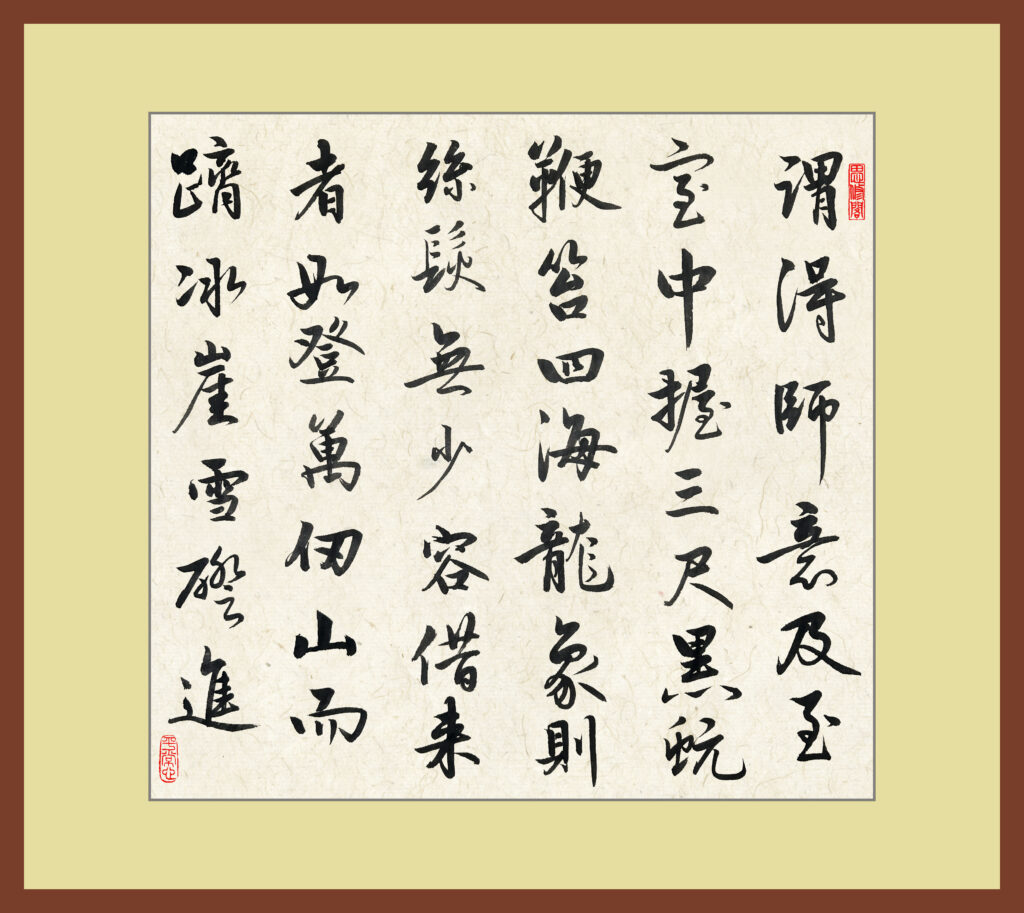 思修閣
謂得師意及至
室中握三尺黑蚖
鞭笞四海龍象則
絲髮無少容借来
者如登萬仞山而
躋冰崖雪磴進
平常心